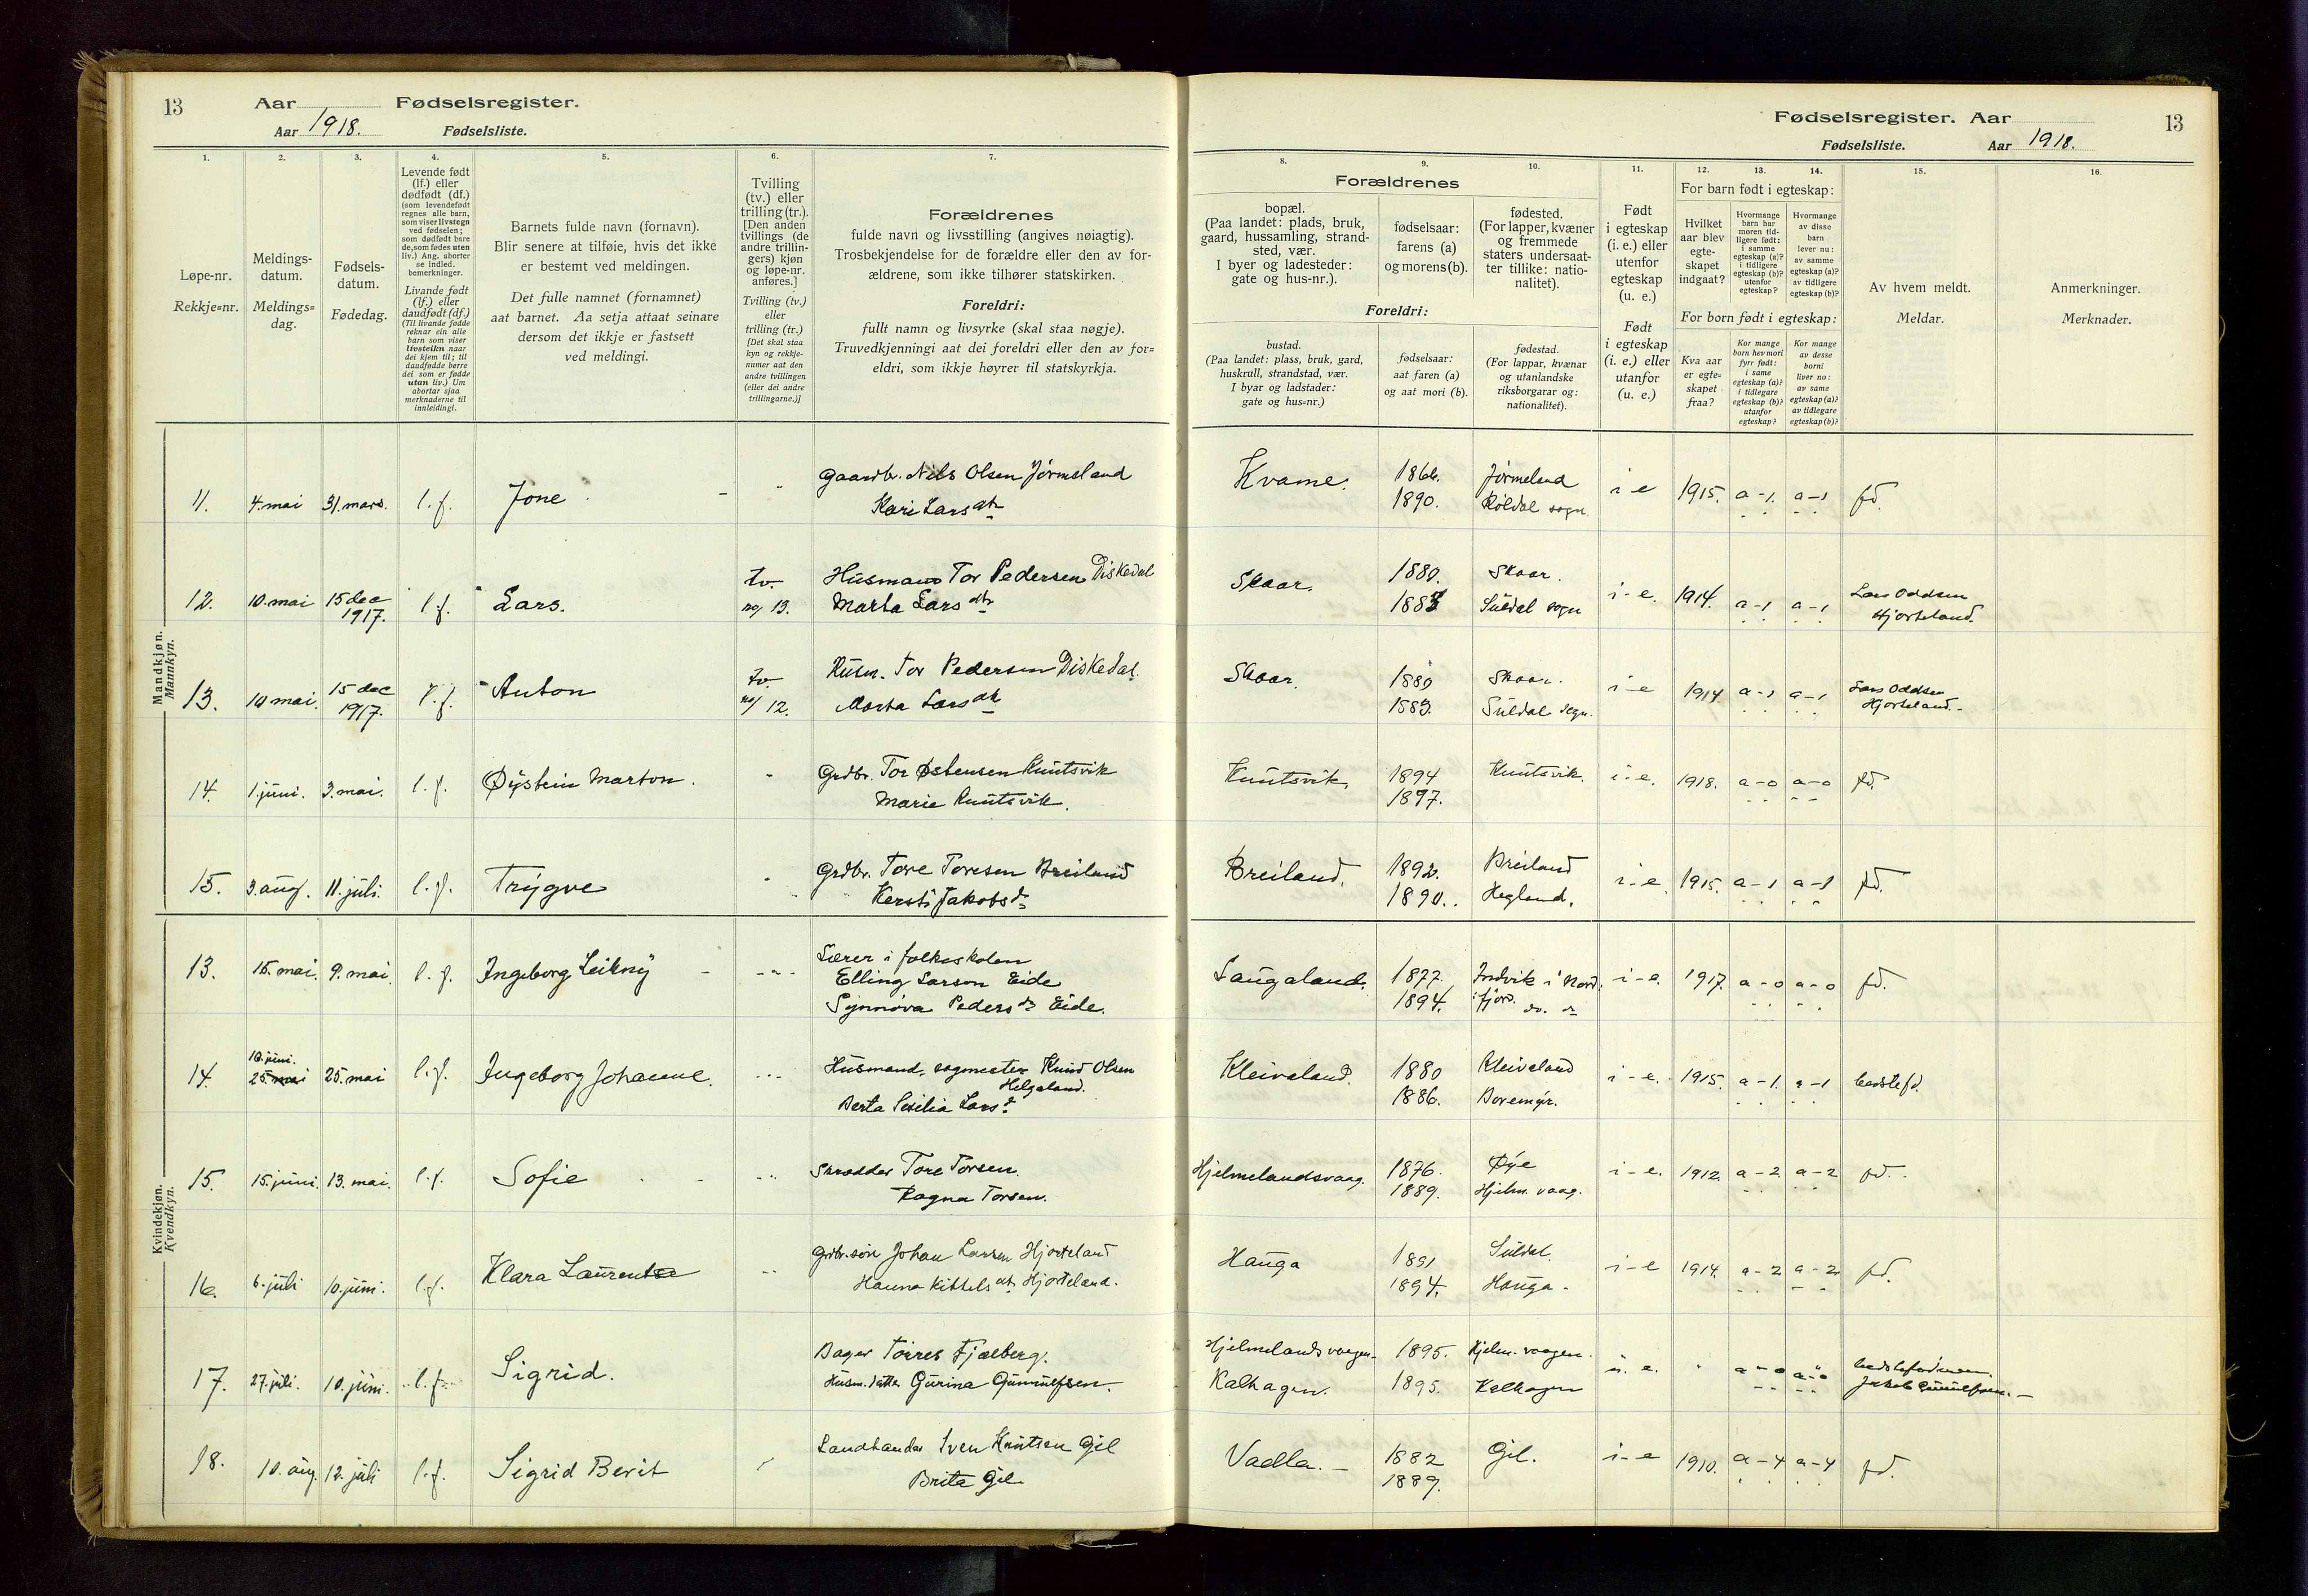 13 Aar Fødselsregister.
Aar 1918. Fødselsliste.
1. 2. 3. 4. 5. 6. 7.
Løpe-nr.
Rekkje=nr.
Meldings-
datum.
Meldings=
dag.
Fødsels-
datum.
Fødedag.
Levende født
(lf.) eller
dødfødt (df.)
(som levendefødt
regnes alle barn,
som viser livstegn
ved fødselen;
som dødfødt bare
de, som fødes uten
liv.) Ang. aborter
se indled.
bemerkninger.
Livande født
(lf.) eller
daudfødt (df.)
(Til livande fødde
reknar ein alle
barn som viser
livsteikn naar
dei kjem til; til
daudfødde berre
dei som er fødde
utan liv.) Um
abortar sjaa
merknaderne til
innleidingi.
Barnets fulde navn (fornavn).
Blir senere at tilføie, hvis det ikke
er bestemt ved meldingen.
Det fulle namnet (fornamnet)
aat barnet. Aa setja attaat seinare
dersom det ikkje er fastsett
ved meldingi.
Tvilling
(tv.) eller
trilling (tr.).
[Den anden
tvillings (de
andre trillin-
gers) kjøn
og løpe-nr.
anføres.]
Tvilling (tv.)
eller
trilling (tr.)
[Det skal staa
kyn og rekkje-
numer aat den
andre tvillingen
(eller dei andre
trillingarne.)]
Forældrenes
fulde navn og livsstilling (angives nøiagtig).
Trosbekjendelse for de forældre eller den av for-
ældrene, som ikke tilhører statskirken.
Foreldri:
fullt namn og livsyrke (skal staa nøgje).
Truvedkjenningi aat dei foreldri eller den av for=
eldri, som ikkje høyrer til statskyrkja.
Mandkjøn.
Mannkyn.
11. 4. mai 31. mars. l. f. Jone - - Gaardbr. Nils Olsen Jørmeland
Kari Larsdtr
12. 10. mai 15 dec 1917. l. f. Lars. tv. no/ 13. Husmand Tor Pedersen Diskedal
Marta Larsdtr
13. 10 mai. 15 dec 1917. l. f. Anton tv. no/ 12. Husm. Tor Pedersen Diskedal.
Marta Larsdtr
14. 1. juni. 3. mai. l. f. Øystein Marton. - Grdbr. Tor Østensen Knutsvik
Marie Knutsvik.
15. 3. aug. 11. juli. l. f. Trygve - Grdbr. Tore Toresen Breiland
Kersti Jakobsd
Kvindekjøn.
Kvendkyn.
13. 15. mai. 9. mai l. f. Ingeborg Leikny - - - - Lærer i folkeskolen
Elling Larson Eide
Synnøva Pedersdr Eide.
14. 10. juni. 25. mai 25. mai l. f. Ingeborg Johanne. Husmand, sagmester Knud Olsen
Helgaland.
Berta Sesilia Larsd
15. 15. juni. 13. mai. l. f. Sofie - Skrædder Tore Torsen.
Ragna Torsen.
16. 6. juli 10. juni. l. f. Klara Laurentse Grbr.søn Johan Larsen Hjorteland
Hanna Kittelsdt. Hjorteland.
17. 27. juli. 10. juni. l. f. Sigrid. Bager Torres Fjælberg.
Husm.datter Gurina Gunnulfsen.
18. 10. aug. 12. juli l. f. Sigrid Berit Landhandler Sven Knutsen Gil
Brita Gil
Fødselsregister. Aar 13
Fødselsliste. Aar 1918.
8. 9. 10. 11. 12. 13. 14. 15. 16.
Forældrenes
bopæl.
(Paa landet: plads, bruk,
gaard, hussamling, strand-
sted, vær.
I byer og ladesteder:
gate og hus-nr.).
fødselsaar:
farens (a)
og morens (b).
fødested.
(For lapper, kvæner
og fremmede
staters undersaat-
ter tillike: natio-
nalitet).
Foreldri:
bustad.
(Paa landet: plass, bruk, gard,
huskrull, strandstad, vær.
I byar og ladstader:
gate og hus=nr.)
fødselsaar:
aat faren (a)
og aat mori (b).
fødestad.
(For lappar, kvænar
og utanlandske
riksborgarar og:
nationalitet).
Født
i egteskap
(i. e.) eller
utenfor
egteskap
(u. e.)
Født
i egteskap
(i. e.) eller
utanfor
(u. e.)
For barn født i egteskap:
Hvilket
aar blev
egte-
skapet
indgaat?
Hvormange
barn har
moren tid-
ligere født:
i samme
egteskap (a)?
i tidligere
egteskap (b)?
utenfor
egteskap?
Hvormange
av disse
barn
lever nu:
av samme
egteskap (a)?
av tidligere
egteskap (b)?
For born født i egteskap:
Kva aar
er egte=
skapet
fraa?
Kor mange
born hev mori
fyrr født:
i same
egteskap (a)?
i tidlegare
egteskap (b)?
utanfor
egteskap?
Kor mange
av desse
borni
liver no:
av same
egteskap (a)?
av tidlegare
egteskap (b)?
Av hvem meldt.
Meldar.
Anmerkninger.
Merknader.
Kvame. 1866. 1890. Jørmeland Røldal sogn i e 1915. a-1. a-1 fd.
Skaar. 1880. 1883 Skaar. Suldal sogn i-e. 1914. a-1 a-1 Lars Oddsen
Hjorteland.
Skaar. 1880 1883. Skaar. Suldal sogn. i-e 1914 a-1 a-1 Lars Oddsen
Hjorteland.-
Knutsvik. 1894 1897. Knutsvik. i-e. 1918. a-0 a-0 fd.
Breiland. 1892. 1890. Breiland Hegland. i-e. 1915. a-1 a-1 fd.
Laugaland. 1877. 1894. Indvik i Nord-
fjord. do. do i-e. 1917. a-0 a-0 fd.
Kleivaland. 1880 1886. Kleivaland Boremyr. i-e. 1915. a-1. a-1 bedstefd.
Hjelmelandsvaag. 1876. 1889. Øye Hjelm. vaag. i-e. 1912. a-2 a-2 fd.
Hauga 1891 1894. Suldal. Hauga. i-e 1914. a-2 a-2 fd.
Hjelmelandsvaagen. 1895. Hjelm. vaagen. u. e. " a-0 a-0 bedstefadermor.
Kalhagen. 1895. Kalhagen Jakob Gunnulfsen.-
Vadla.- 1882 1889. Gil. i-e 1910. a-4 a-4 fd.